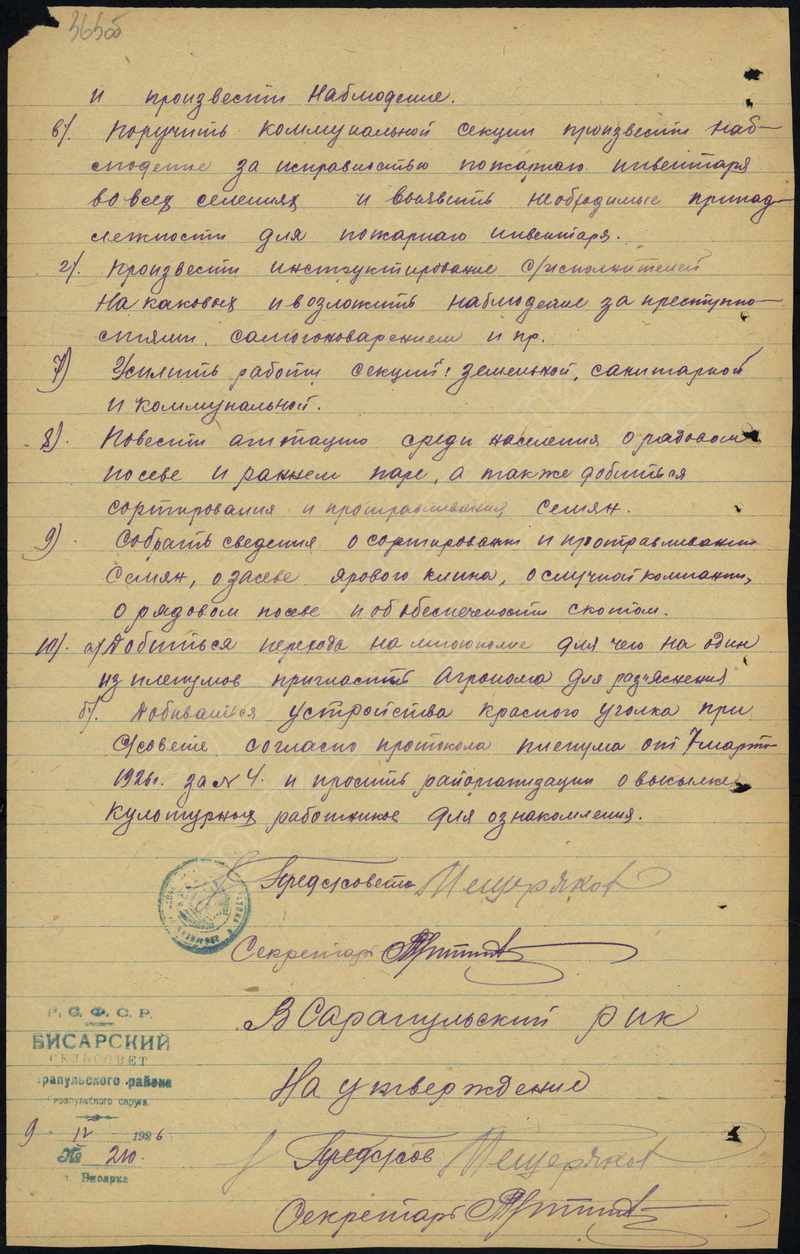 365об
и произвести наблюдение.
в/. Поручить коммунальной секции произвести наб-
людение за исправностью пожарнаго инвентаря
во всех селениях и выявить необходимые принад-
лежности для пожарнаго инвентаря.
г/. Произвести инструктирование с/исполнителей
на каковых и возложить наблюдение за преступно-
стями, самогоноварением и пр.
7) Усилить работы секций: земельной, санитарной
и коммунальной.
8). Повести агитацию среди населения о рядовом
посеве и раннем паре, а также добиться
сортирования и протравливания семян.
9). Собрать сведения о сортировании и протравливании
семян, о засеве ярового клина, о случной компании,
о рядовом посеве и об обеспечености скотом.
10/. а/ Добиться перехода на многополие для чего на один
из пленумов пригласить Агронома для раз'яснения
б/. Добиваться устройства красного уголка при
С/совете согласно протокола пленума от 7 марта
1926 г. за № 4. и просить райорганизации о высылке
культурных работников для ознакомления.
Предс/совета Мещеряков
Секретарь
В Сарапульский рик
На утверждение
Р. С. Ф. С. Р.
БИСАРСКИЙ
СЕЛЬСОВЕТ
арапульского района
арапульского округа
9 IV 1926
№ 210
Предс/сов Мещеряков
Секретарь